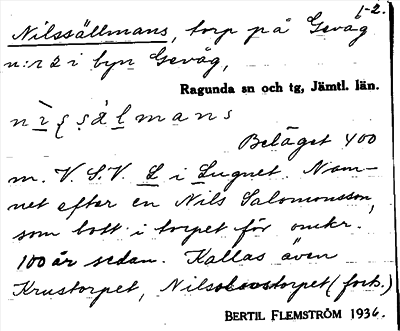 1-2.
Nilssällmans, torp på Gevåg
n:r 2 i byn Gevåg,
Ragunda sn och tg, Jämtl. län.
Beläget 400
m. V.S.V. L i Lugnet. Nam-
net efter en Nils Salomonsson,
som bott i torpet för omkr.
100 år sedan. Kallas även
Krustorpet, Nilsolovstorpet (fork.)
BERTIL FLEMSTRÖM 1936.